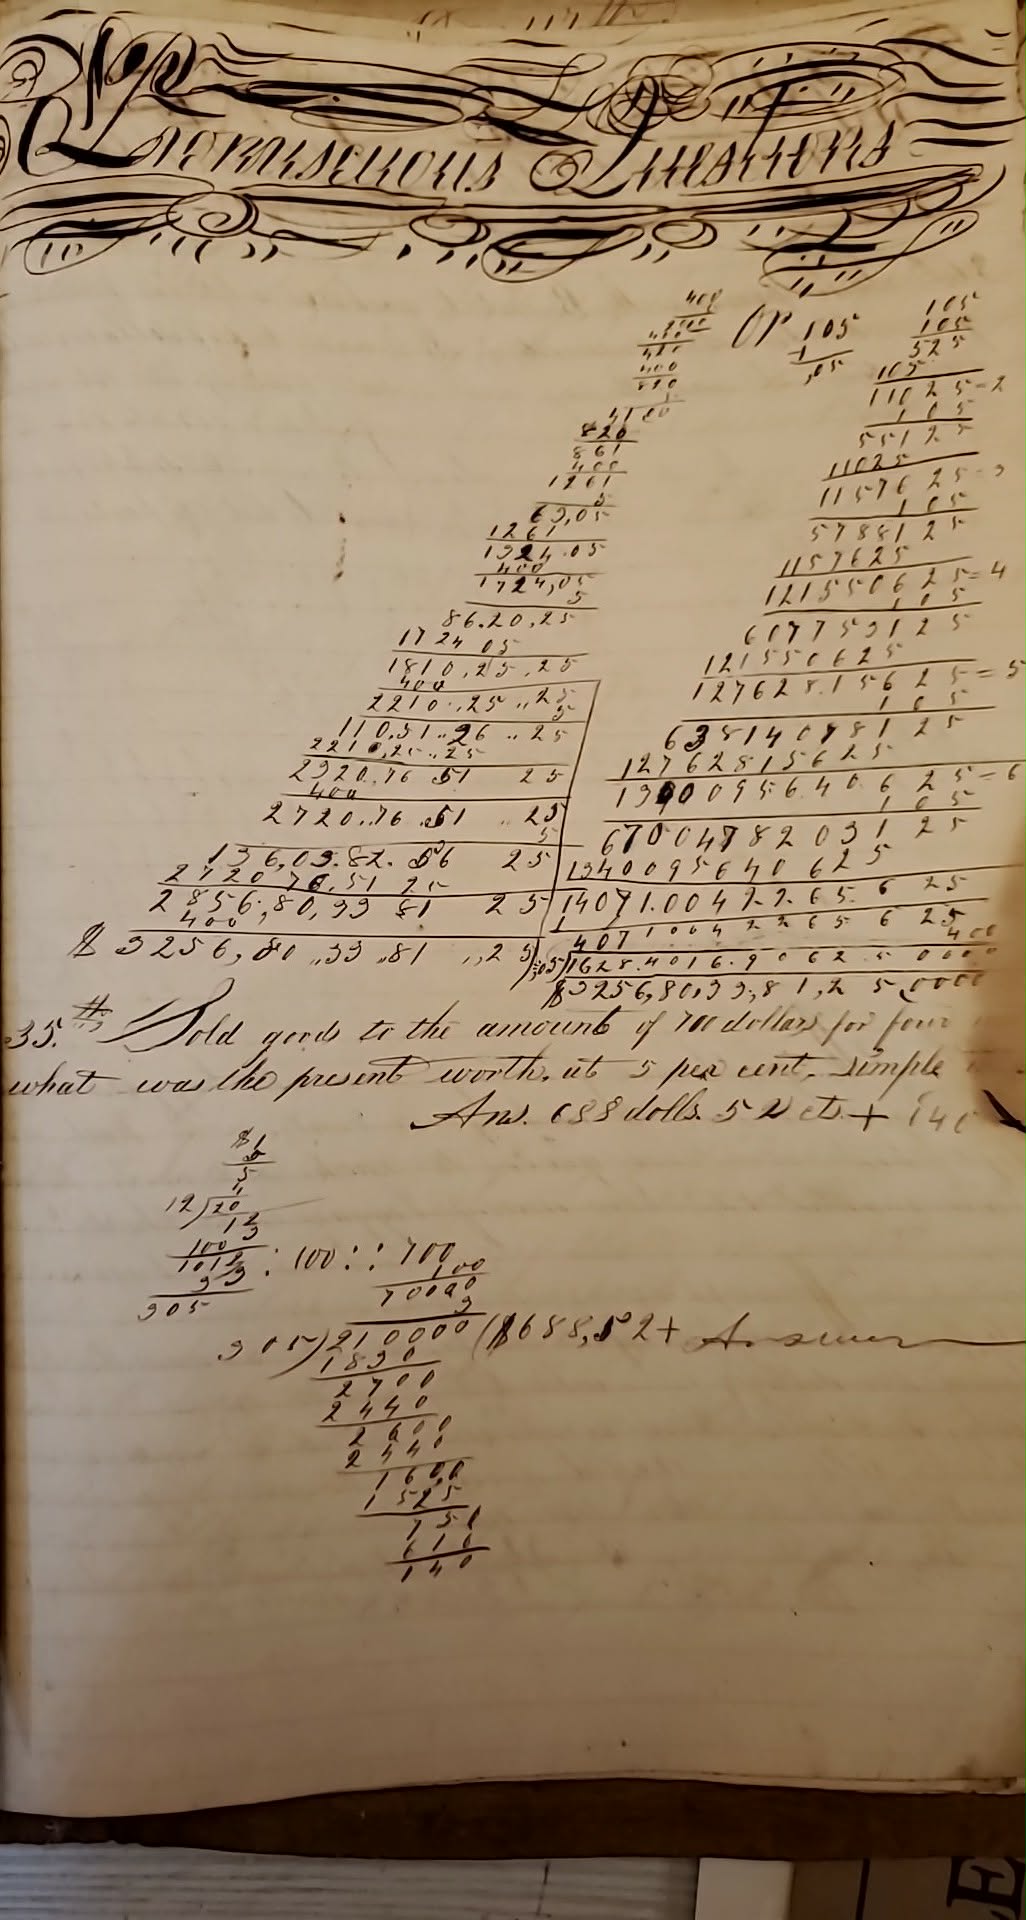 Promiscuous Questions
400
420
400
820
4100
820
861
400
1261
5
63,05
1261
1324.05
400
1724,05
5
86.20,25
1724 05
1810,25,25
400
2210.,25,,25
5
110,51..26..25
2210,25..25
2320..76 51 25
400
2720..76.51..25
5
136,03.82.56 25
2720 76.51 25
2856,80,33 81 25
400
$ 3256,80,,33,,81,,25
Or 105
1
,05
105
105
525
105
11025=2
105
55125
11025
1157625=3
105
5788125
1157625
121550625=4
105
607753125
121550625
127628.15625=5
105
63814078125
12762815625
1340095640625=6
105
6700478203125
1340095640625
14071.00422.65.625
1
407100422656 25
400
,05)1628.4016.9062.50000
$3256,80,33,81,250000
35.th Sold goods to the amount of 700 dollars for four
what was the present worth, at 5 per cent, simple
Ans. 688 dolls. 52 cts. +
$1
5
5
4
12)20
100
: 100 :: 700
305
100
70000
3
305)210000($688,52+ Answer
1830
2700
2440
2600
2440
1600
1525
750
610
140